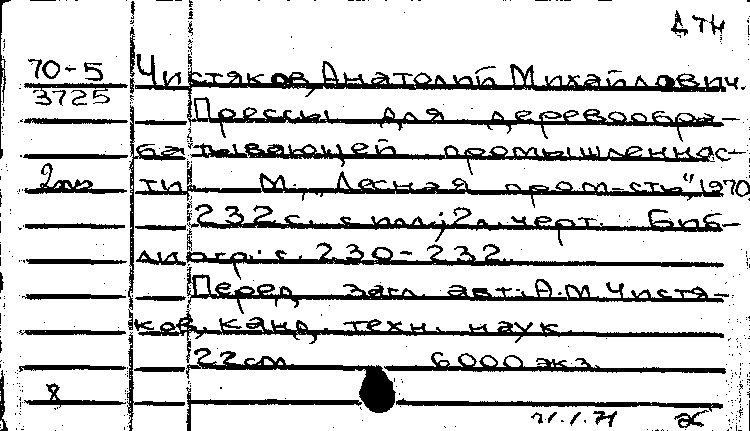 ДТН
70-5 Чистяков, Анатолий Михайлович.
3725
Прессы для деревообра-
батывающей промышленнос-
ти. М., „Лесная пром-сть", 1970
232 с. с илл.; 2 л. черт. Биб-
лиогр.: с. 230-232.
Перед загл. авт.: А.М. Чистя-
ков, канд. техн. наук.
22 см 6000 экз.
8
21.1.71